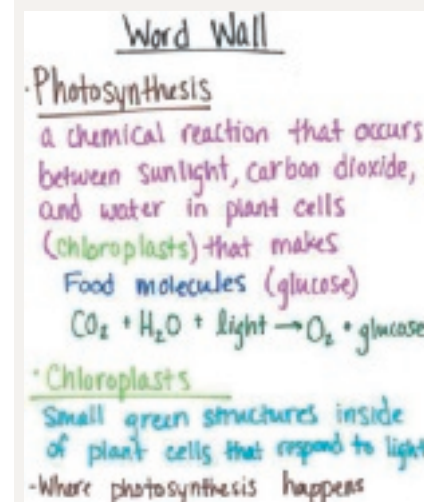 Word Wall
·Photosynthesis
a chemical reaction that occurs
between sunlight, carbon dioxide,
and water in plant cells
(chloroplasts) that makes
Food molecules (glucose)
CO₂ + H₂O + light → O₂ + glucose
·Chloroplasts
Small green structures inside
of plant cells that respond to light
-Where photosynthesis happens